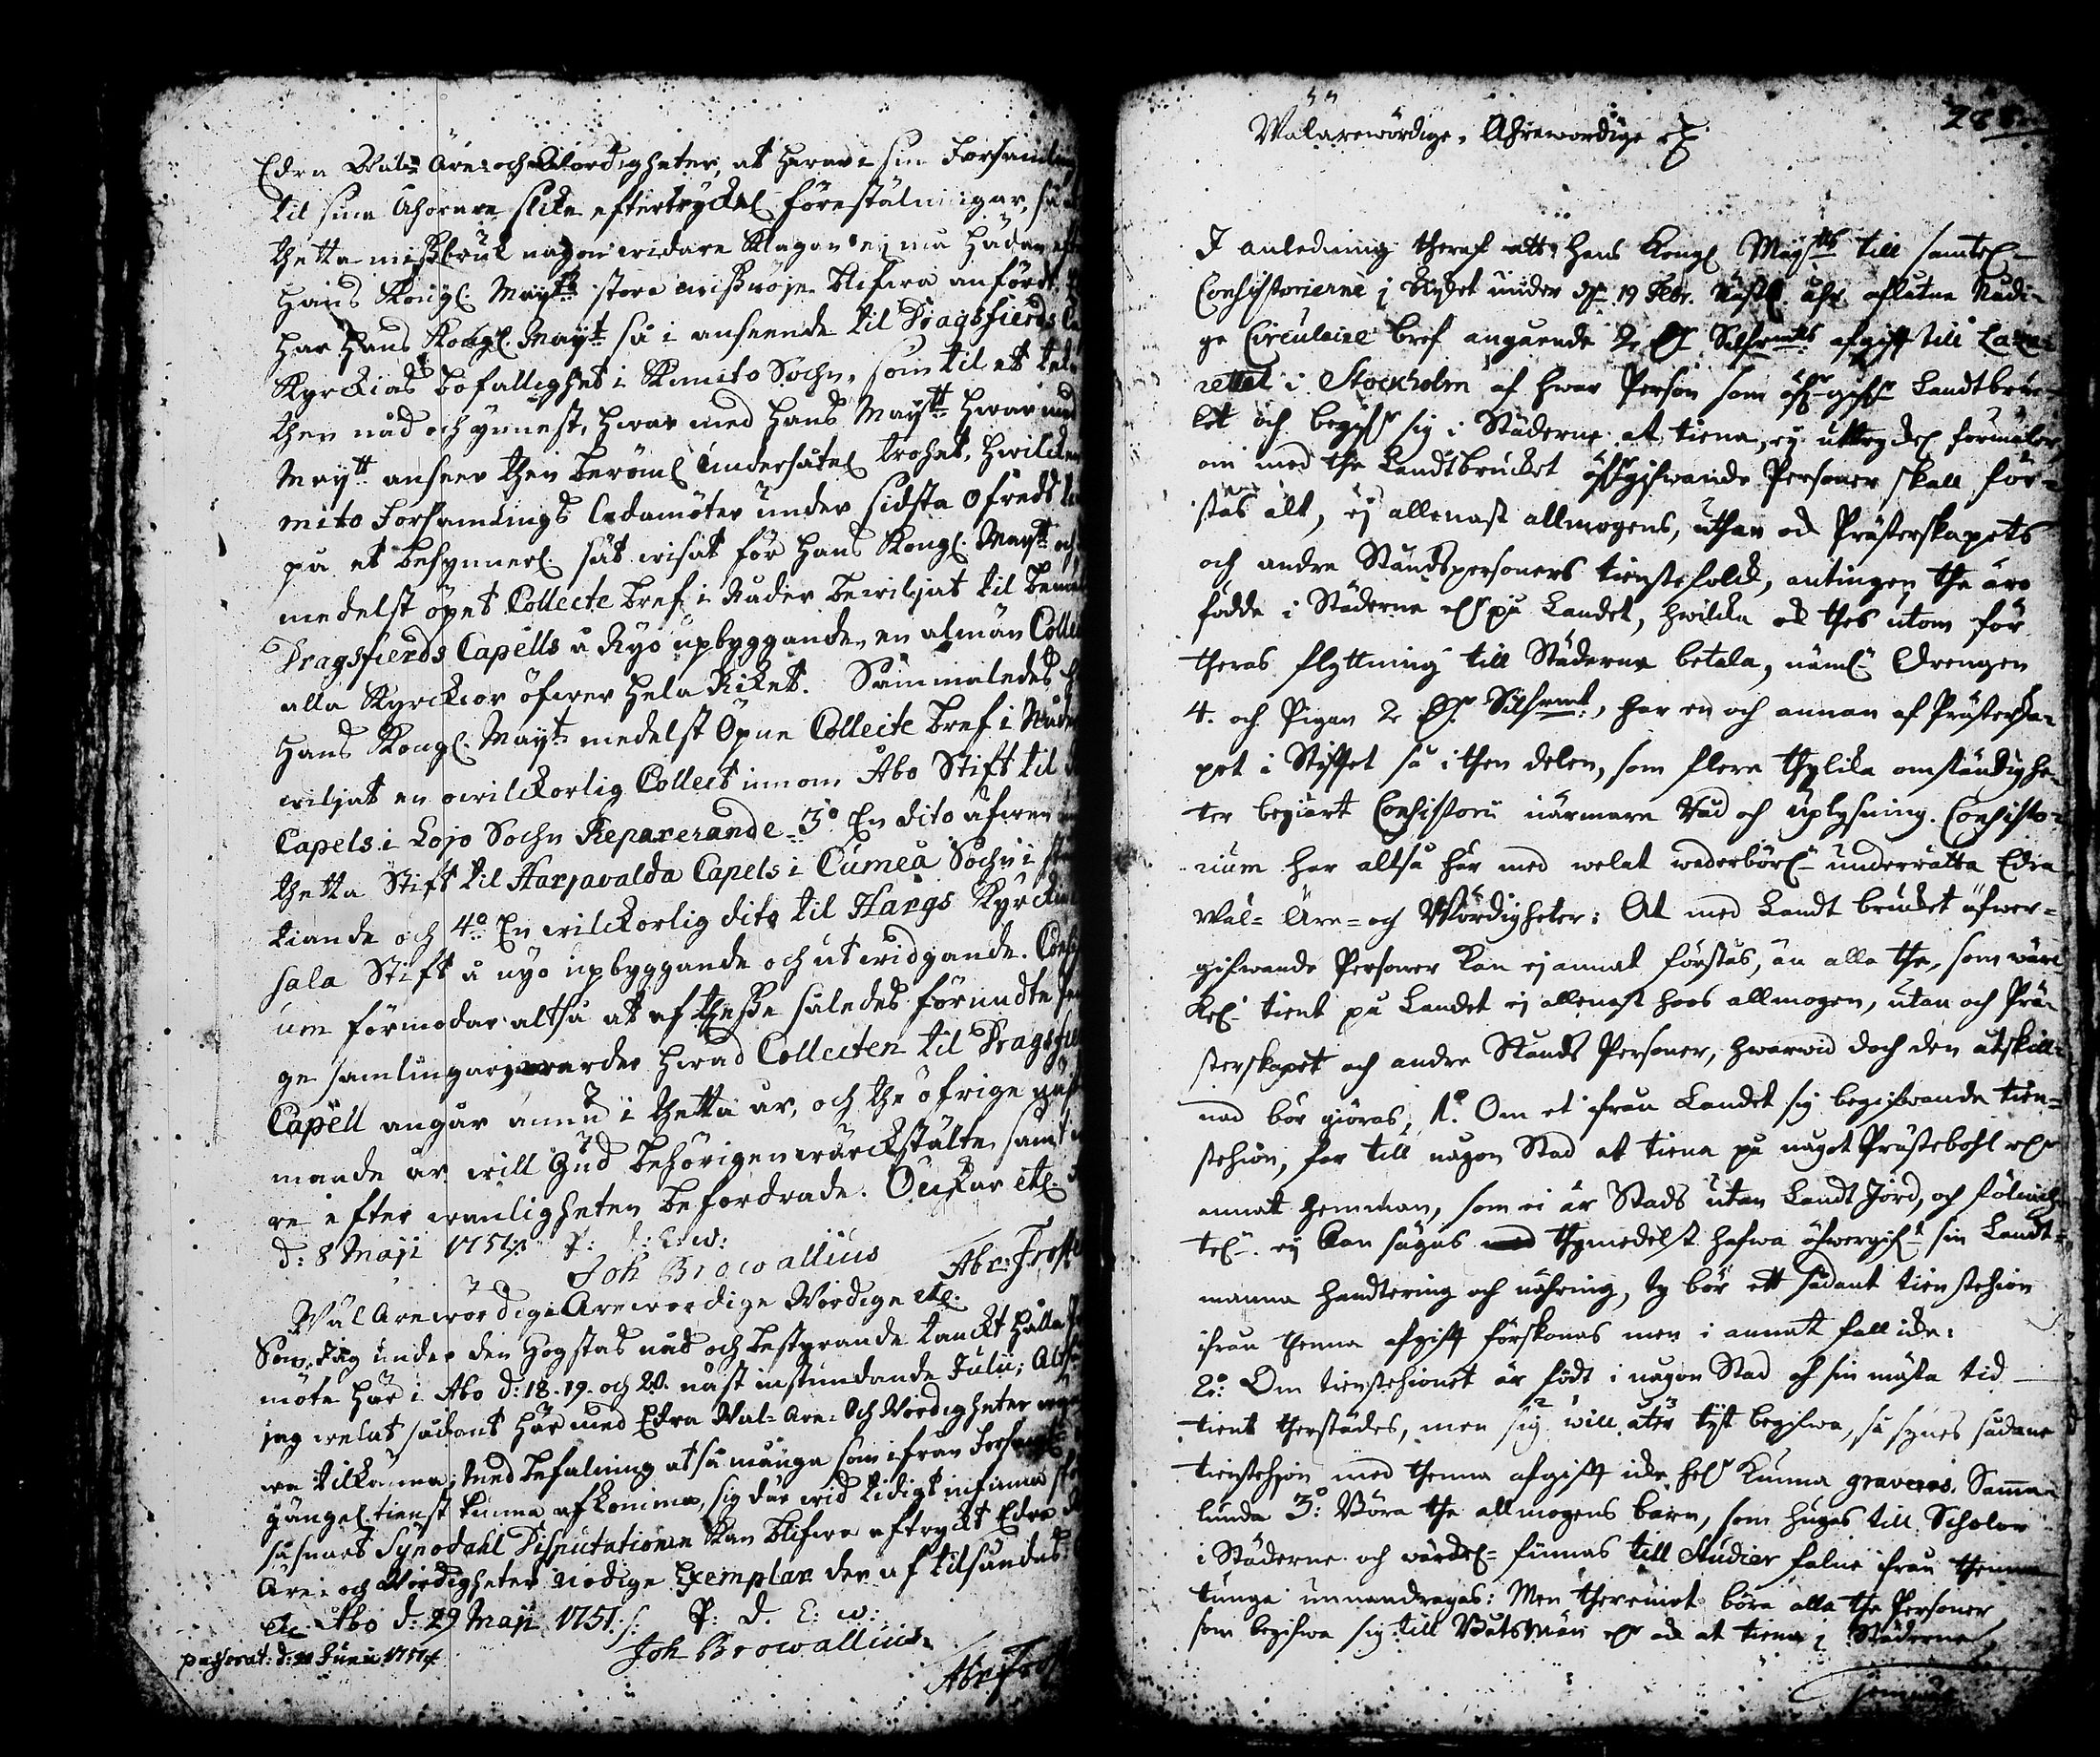 Edra Wäl- Äre- och Wördigheter, at hwar i sin Församling
til sine åhörare slike eftertryckel. föreställningar, så at
thetta missbruk någon widare klagan ej må hädanefter
Hans Kongl. Maytts store missnöje blifwa anfördt.
har Hans Kongl. Maytt så i anseende til Dragsfierds
Kyrckias bofällighet i Kimito Sochn, som til ett
then nåd och ynnest, hwar med Hans Maytt
Maytt anseer then berömel. undersåtel. trohet, hwilcken
mito Församlings Ledamöter under sidsta ofreds
på et besynnerl. sätt wisat för Hans Kongl. Maytt och
medelst öpet Collecte bref i Nåder bewiljat til
Dragsfierds Capells å Nyo upbyggande, en almän Collect
alla Kyrckior öfwer hela Riket. Sammaledes
Hans Kongl. Maytt medelst Öpne Collecte bref i Nåder
wiljat en owilckorlig Collect innom Åbo Stift til
Capels i Lojo Sochn Reparerande. 3o En dito äfwen
thetta Stift til Harjavalda Capels i Cumeå Sochn i
tiande och 4o En wilckorlig dito til Hargs Kyrckia
sala Stift å nyo upbyggande och utwidgande. Consistori
um förmodar altså at af thesse således förundte
ge samlingar, warder hwad Collecten til Dragsfierds
Capell angår ännu i thetta år, och the öfrige näst
mande år will Gud behörigen wärckstälte, samt
re efter wanligheten befordrade. Önskar etc.
d: 8 Maji 1751. P: d: E: w:
Joh Browallius Abr: Frosterus
Wäl Ärewördige Ärewördige Wördige etc.
Som jag under den Högstas nåd och bestyrande tänckt hålla
möte här i Åbo d: 18. 19. och 20. näst instundande Julii; Altså
jag welat sådant här med Edra Wäl- Äre- Och Wördigheter
wa tilkänna; Med befalning at så månge som ifrån Församl.
gängel. tienst kunna afkomma, sig där wid tidigt infinna
så snart Synodahl Disputationen kan blifwa aftryckt Edra
Äre- och Wördigheter nödige Exemplar der af tilsändas.
etc Åbo d: 29 Maji 1751. P: d. E: w:
Joh Browallius
Abr: Frosterus
passerat: d: 20 Junii 1751

288
Wälärewördige, Ährewördige etc
I anledning theraf att Hans Kongl. Maytts till samtel.
Consistorierne i Riket under d. 19 Febr. nästl. åhr aflåtne Nådi-
ge Circulaire bref angående 2 dr Silfwmts afgift till Laza-
rettet i Stockholm af hwar Person som öfwergifwer Landtbru-
ket och begifwer sig i Städerne at tiena, ej uttryckel. förmäler,
om med the Landtbruket öfwergifwande Personer skall för-
stås alt, ej allenast allmogens, uthan ock Prästerskapets
och andre Ståndspersoners tienstefolck, antingen the äro
födde i Städerne eller på Landet, hwilcka ock thes utom för
theras flyttning till Städerne betala, näml. Drengen
4. och Pigan 2 dr Silfwmt, har en och annan af Prästerska-
pet i Stiftet så i then delen, som flere thylika omständighe-
ter begiärt Consistorii närmare Råd och uplysning. Consisto-
rium har altså här med welat wederbörl. underrätta Edra
Wäl- Äre- och Wördigheter: At med Landtbruket öfwer-
gifwande Personer kan ej annat förstås, än alla the, som wärc-
kel. tient på Landet ej allenast hoos allmogen, utan och Prä-
sterskapet och andre Stånds Personer, hwarwid doch den åtskill-
nad bör giöras, 1o. Om et ifrån Landet sig begifwande tien-
stehion, far till någon Stad at tiena på något Prästebohl eller
annat hemman, som ej är Stads utan Landt Jord, och fölackte-
tel. ej kan sägas thymedelst hafwa öfwergifwit sin Landt-
manna handtering och nähring, ty bör ett sådant tienstehion
ifrån thenna afgift förskonas men i annat fall icke:
2o: Om tienstehionet är födt i någon Stad och sin mästa tid
tient therstädes, men sig will åter tyst begifwa, så synes sådane
tienstehion med thenna afgift icke heller kunna graveras. Samma-
lunda 3o: Böra the allmogens barn, som hugas till Scholor
i Städerne och wärckel. finnas till Studier falne ifrån thenna
tunga unnandragas: Men theremot böra alla the Personer
som begifwa sig till Båtsmän eller ock at tiena i Städerne,